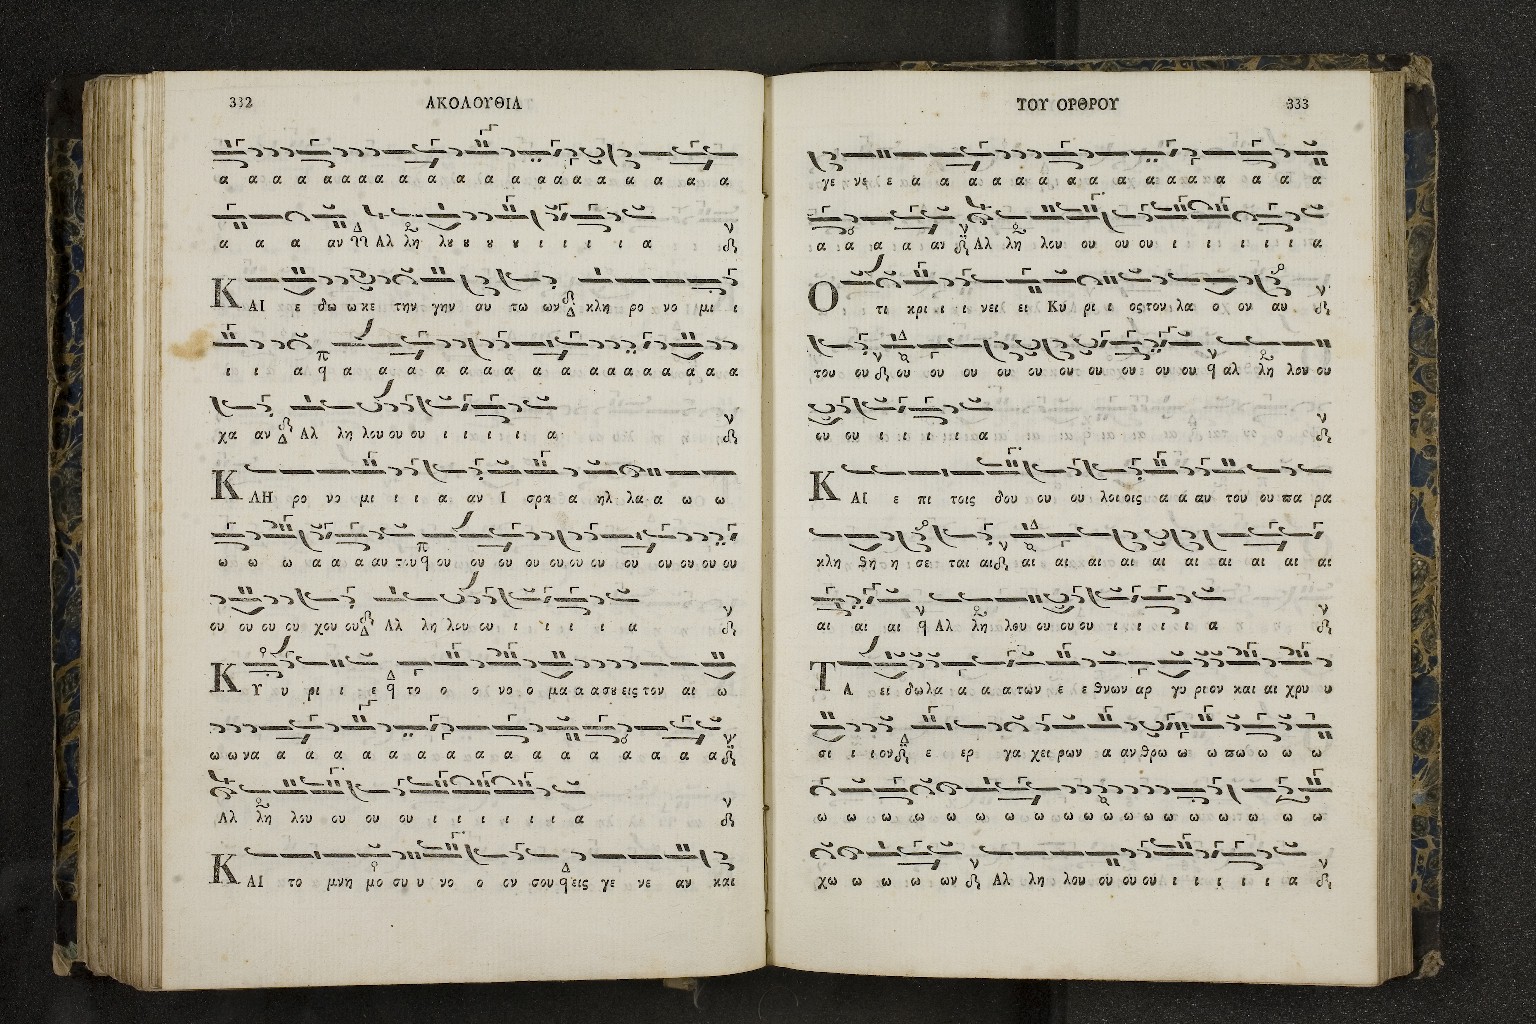 332 ΑΚΟΛΟΥΘΙΑ
α α α α α α α α α α α α α α α α α α α α α α
α α α αν Αλ λη λου ου ου ου ι ι ι ι α
ΚΑΙ ε δω ω κε την γην αυ τω ων κλη ρο νο μι ι
ι ι α α α α α α α α α α α α α α α α α
χα αν Αλ λη λου ου ου ι ι ι ι α
ΚΛΗ ρο νο μι ι ι α αν Ι σρα α ηλ λα α ω ω
ω ω ω α α α αυ του ου ου ου ου ου ου ου ου ου ου ου ου
ου ου ου ου χου ου Αλ λη λου ου ι ι ι ι α
ΚΥ υ ρι ι ε το ο ο νο ο μα α α σου εις τον αι ω
ω ω να α α α α α α α α α α α α α α α α
Αλ λη λου ου ου ου ι ι ι ι ι ι α
ΚΑΙ το μνη μο συ υ νο ο ον σου εις γε νε αν και
ΤΟΥ ΟΡΘΡΟΥ 333
γε νε ε α α α α α α α α α α α α α α α α
α α α α αν Αλ λη λου ου ου ου ι ι ι ι ι ι α
Ο τι κρι ι ι νει ει Κυ ρι ι ος τον λα ο ον αυ
του ου ου ου ου ου ου ου ου ου ου ου αλ λη λου ου
ου ου ι ι ι ι α
ΚΑΙ ε πι τοις δου ου ου λοι οις α α αυ του ου πα ρα
κλη θη η σε ται αι αι αι αι αι αι αι αι αι αι αι
αι αι αι Αλ λη λου ου ου ου ι ι ι ι α
ΤΑ ει δωλα α α α των ε ε θνων αρ γυ ριον και αι χρυ υ
σι ι ι ον ε ερ γα χει ρων α αν θρω ω ω πω ω ω ω
ω ω ω ω ω ω ω ω ω ω ω ω ω ω ω ω ω ω
χω ω ω ω ων Αλ λη λου ου ου ου ι ι ι ι ι α